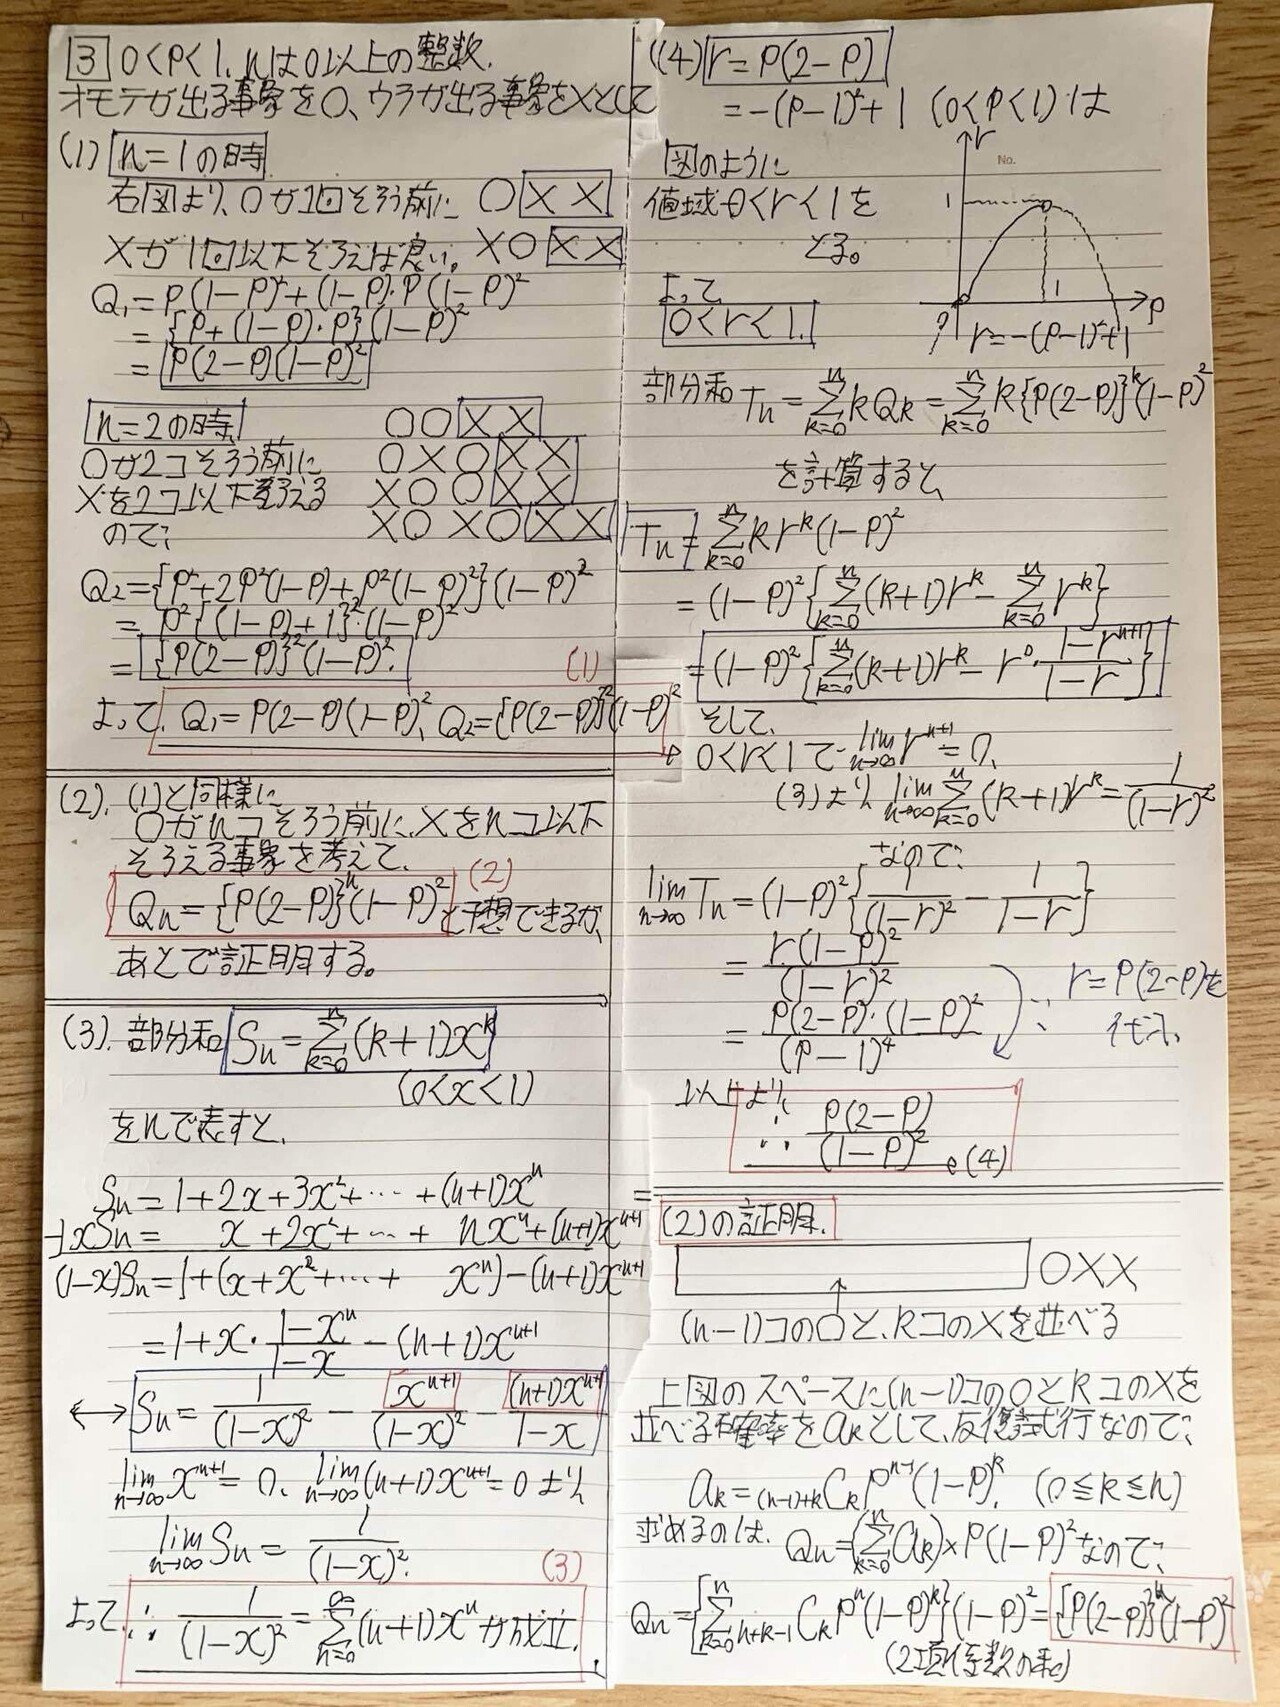 3 0<P<1, nは0以上の整数.
オモテが出る事象を○、ウラが出る事象を×として
(1) n=1の時
右図より、○が1回そろう前に ○××
×が1回以下そろえば良い。 ×○××
Q₁=P(1-P)²+(1-P)・P(1-P)²
={P+(1-P)・P}(1-P)²
=P(2-P)(1-P)²
n=2の時 ○○××
○が2コそろう前に ○×○××
×を2コ以下そろえる ×○○××
ので; ×○×○××
Q₂={P²+2P²(1-P)+P²(1-P)²}(1-P)²
=P²{(1-P)+1}²・(1-P)²
={P(2-P)}²(1-P)².
(1)
よって、Q₁=P(2-P)(1-P)²、Q₂={P(2-P)}²(1-P)²
(2). (1)と同様に
○がnコそろう前に、×をnコ以下
そろえる事象を考えて、
(2)
Qn={P(2-P)}ⁿ(1-P)²と予想できるが、
あとで証明する。
(3). 部分和 Sn=Σ[k=0→n](k+1)xᵏ
(0<x<1)
をnで表すと、
Sn=1+2x+3x²+…+(n+1)xⁿ
-)xSn= x+2x²+…+ nxⁿ+(n+1)xⁿ⁺¹
(1-x)Sn=1+(x+x²+…+ xⁿ)-(n+1)xⁿ⁺¹
=1+x・(1-xⁿ)/(1-x)-(n+1)xⁿ⁺¹
↔ Sn=1/(1-x)²-xⁿ⁺¹/(1-x)²-(n+1)xⁿ⁺¹/(1-x)
lim[n→∞]xⁿ⁺¹=0、lim[n→∞](n+1)xⁿ⁺¹=0より、
lim[n→∞]Sn=1/(1-x)².
(3)
よって、∴ 1/(1-x)²=Σ[n=0→∞](n+1)xⁿが成立.
(4) r=P(2-P)
=-(P-1)²+1 (0<P<1)は
図のように
値域0<r<1を
とる。
よって、
0<r<1.
No.
r
1
1
P
r=-(P-1)²+1
部分和 Tn=Σ[k=0→n]kQk=Σ[k=0→n]k{P(2-P)}ᵏ(1-P)²
を計算すると、
Tn=Σ[k=0→n]krᵏ(1-P)²
=(1-P)²{Σ[k=0→n](k+1)rᵏ-Σ[k=0→n]rᵏ}
=(1-P)²{Σ[k=0→n](k+1)rᵏ-r⁰・(1-rⁿ⁺¹)/(1-r)}
そして、
0<r<1で lim[n→∞]rⁿ⁺¹=0、
(3)より、lim[n→∞]Σ[k=0→n](k+1)rᵏ=1/(1-r)²
なので;
lim[n→∞]Tn=(1-P)²{1/(1-r)²-1/(1-r)}
=r(1-P)²/(1-r)²
∵ r=P(2-P)を
代入、
=P(2-P)・(1-P)²/(P-1)⁴
以上より、
∴ P(2-P)/(1-P)² 。(4)
(2)の証明.
○××
(n-1)コの○と、kコの×を並べる
上図のスペースに(n-1)コの○とkコの×を
並べる確率をakとして、反復試行なので;
ak=₍ₙ₋₁₎₊ₖCₖPⁿ⁻¹(1-P)ᵏ. (0≦k≦n)
求めるのは、Qn=(Σ[k=0→n]ak)×P(1-P)²なので;
Qn={Σ[k=0→n]ₙ₊ₖ₋₁CₖPⁿ(1-P)ᵏ}(1-P)²={P(2-P)}ⁿ(1-P)²
(2項係数の和)